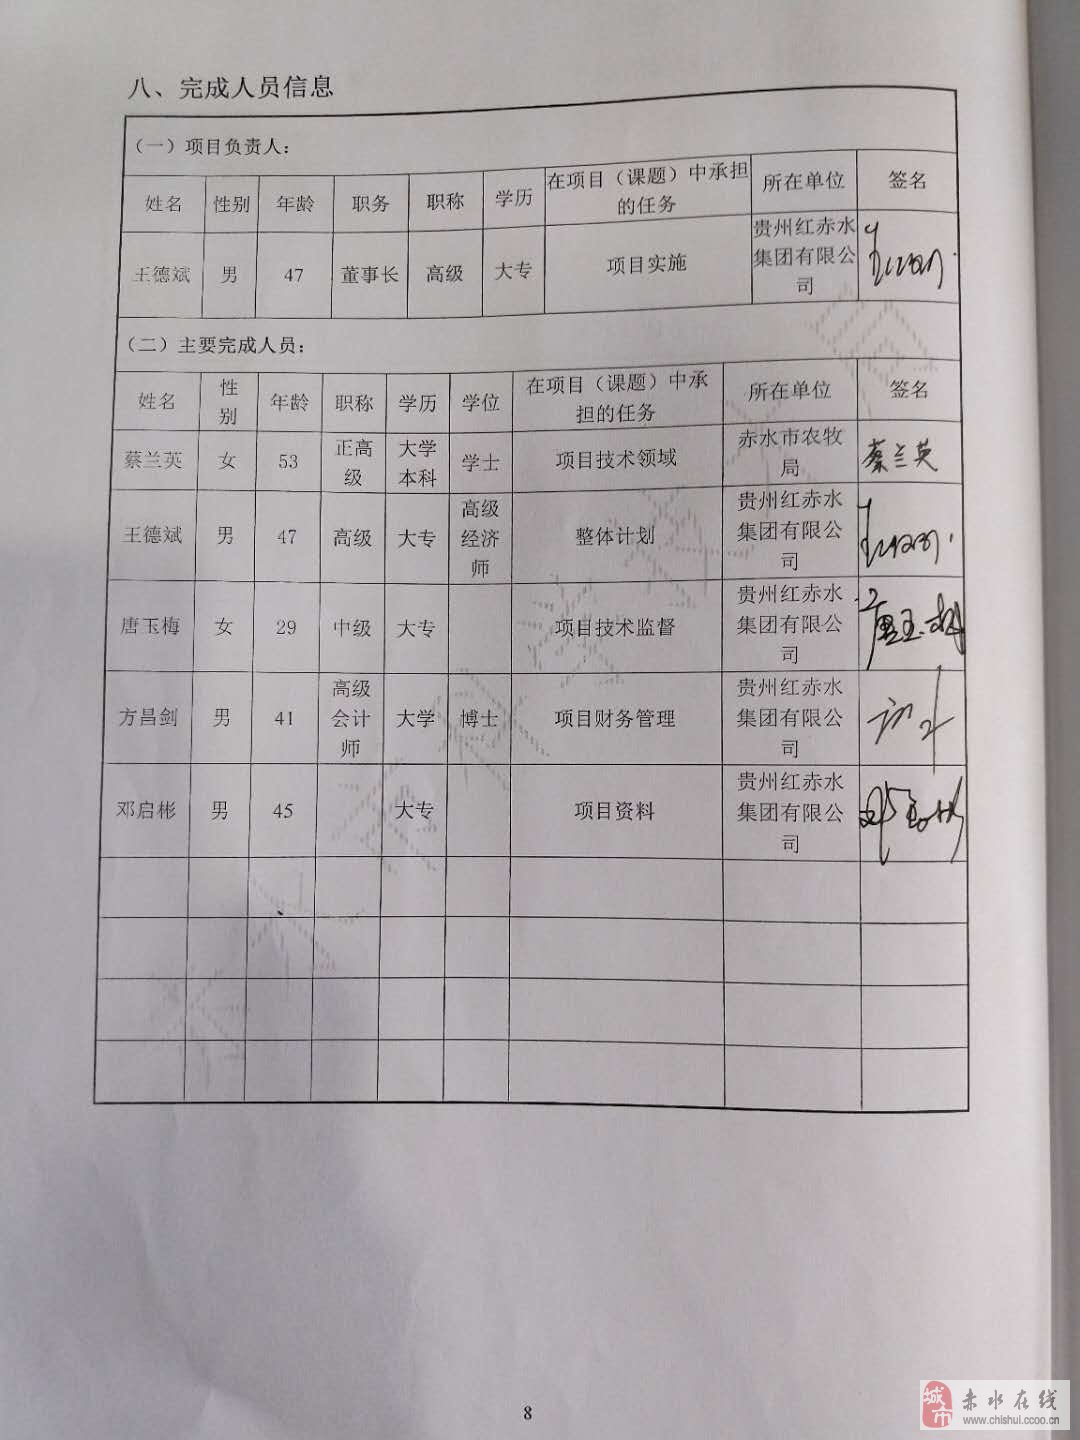 八、完成人员信息
（一）项目负责人：
姓名 性别 年龄 职务 职称 学历 在项目（课题）中承担的任务 所在单位 签名
王德斌 男 47 董事长 高级 大专 项目实施 贵州红赤水集团有限公司
（二）主要完成人员：
姓名 性别 年龄 职称 学历 学位 在项目（课题）中承担的任务 所在单位 签名
蔡兰英 女 53 正高级 大学本科 学士 项目技术领域 赤水市农牧局 蔡兰英
王德斌 男 47 高级 大专 高级经济师 整体计划 贵州红赤水集团有限公司
唐玉梅 女 29 中级 大专 项目技术监督 贵州红赤水集团有限公司 唐玉梅
方昌剑 男 41 高级会计师 大学 博士 项目财务管理 贵州红赤水集团有限公司
邓启彬 男 45 大专 项目资料 贵州红赤水集团有限公司 邓启彬
8
城市 赤水在线
www.chishui.ccoo.cn